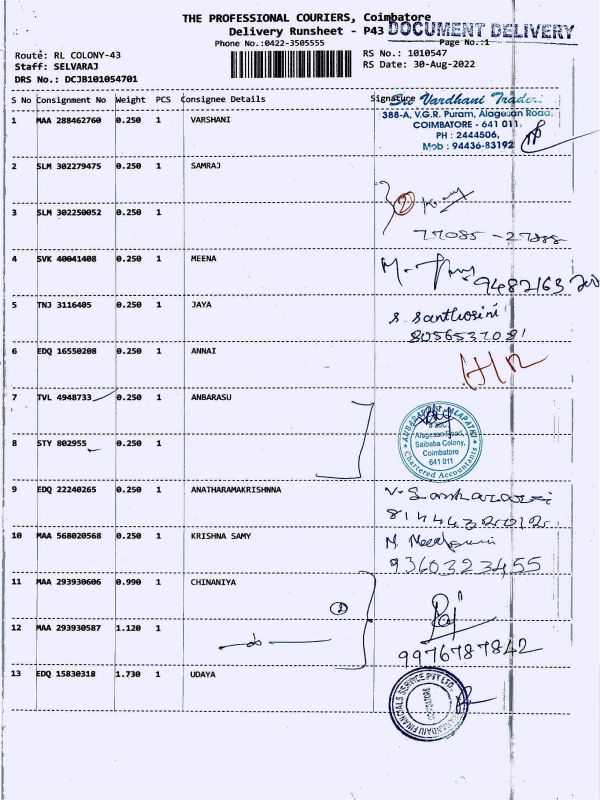 THE PROFESSIONAL COURIERS, Coimbatore
Delivery Runsheet - P43 DOCUMENT DELIVERY
Phone No.:0422-3505555 Page No.:1
Route: RL COLONY-43 RS No.: 1010547
Staff: SELVARAJ RS Date: 30-Aug-2022
DRS No.: DCJB101054701
S No Consignment No Weight PCS Consignee Details Signature
Sri Vardhani Traders
1 MAA 288462760 0.250 1 VARSHANI 388-A, V.G.R. Puram, Alagesan Road,
COIMBATORE - 641 011.
PH : 2444506,
Mob : 94436-83192
2 SLM 302279475 0.250 1 SAMRAJ
2
3 SLM 302250052 0.250 1
77085 -27888
4 SVK 40041408 0.250 1 MEENA
5 TNJ 3116405 0.250 1 JAYA
S. Santhosini
8056537081
6 EDQ 16550208 0.250 1 ANNAI
7 TVL 4948733 0.250 1 ANBARASU
8 STY 802955 0.250 1
Alagesan Road,
Saibaba Colony,
Coimbatore
641 011
Chartered Accountants
9 EDQ 22240265 0.250 1 ANATHARAMAKRISHNNA
10 MAA 568020568 0.250 1 KRISHNA SAMY
9360323455
11 MAA 293930606 0.990 1 CHINANIYA
2
12 MAA 293930587 1.120 1
do
9976787842
13 EDQ 15830318 1.730 1 UDAYA